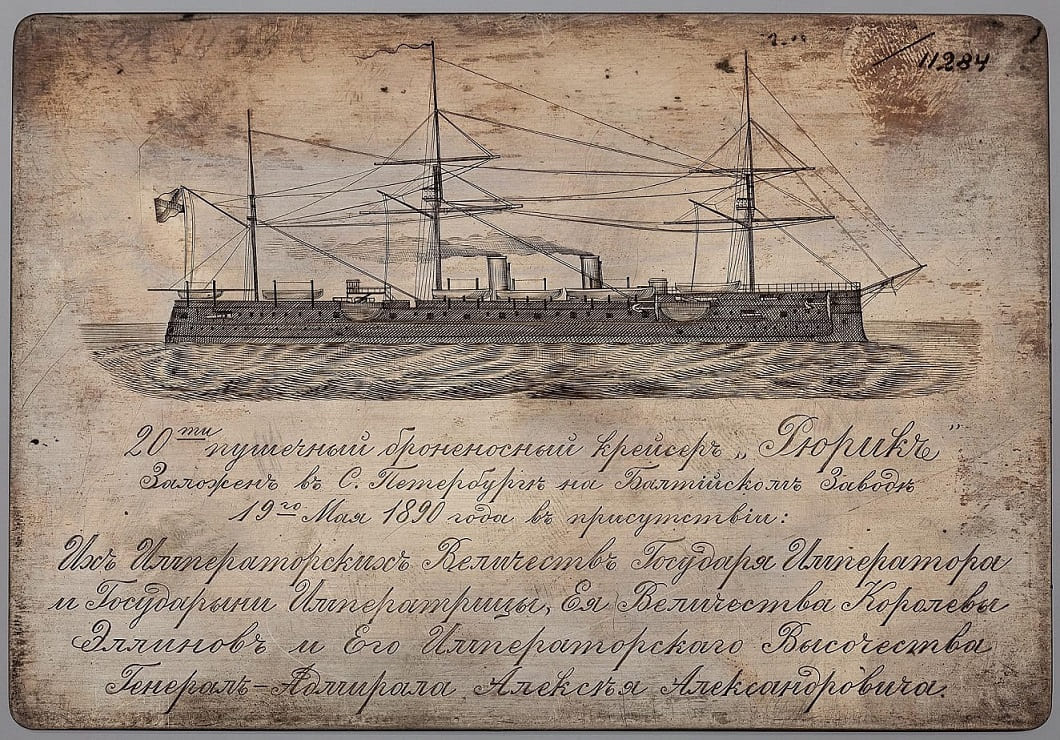 11284
20ти пушечный броненосный крейсеръ „Рюрикъ”
Заложенъ въ С. Петербургѣ на Балтійскомъ Заводѣ
19го Мая 1890 года въ присутствіи:
Ихъ Императорскихъ Величествъ Государя Императора
и Государыни Императрицы, Ея Величества Королевы
Эллиновъ и Его Императорскаго Высочества
Генералъ-Адмирала Алексѣя Александровича.